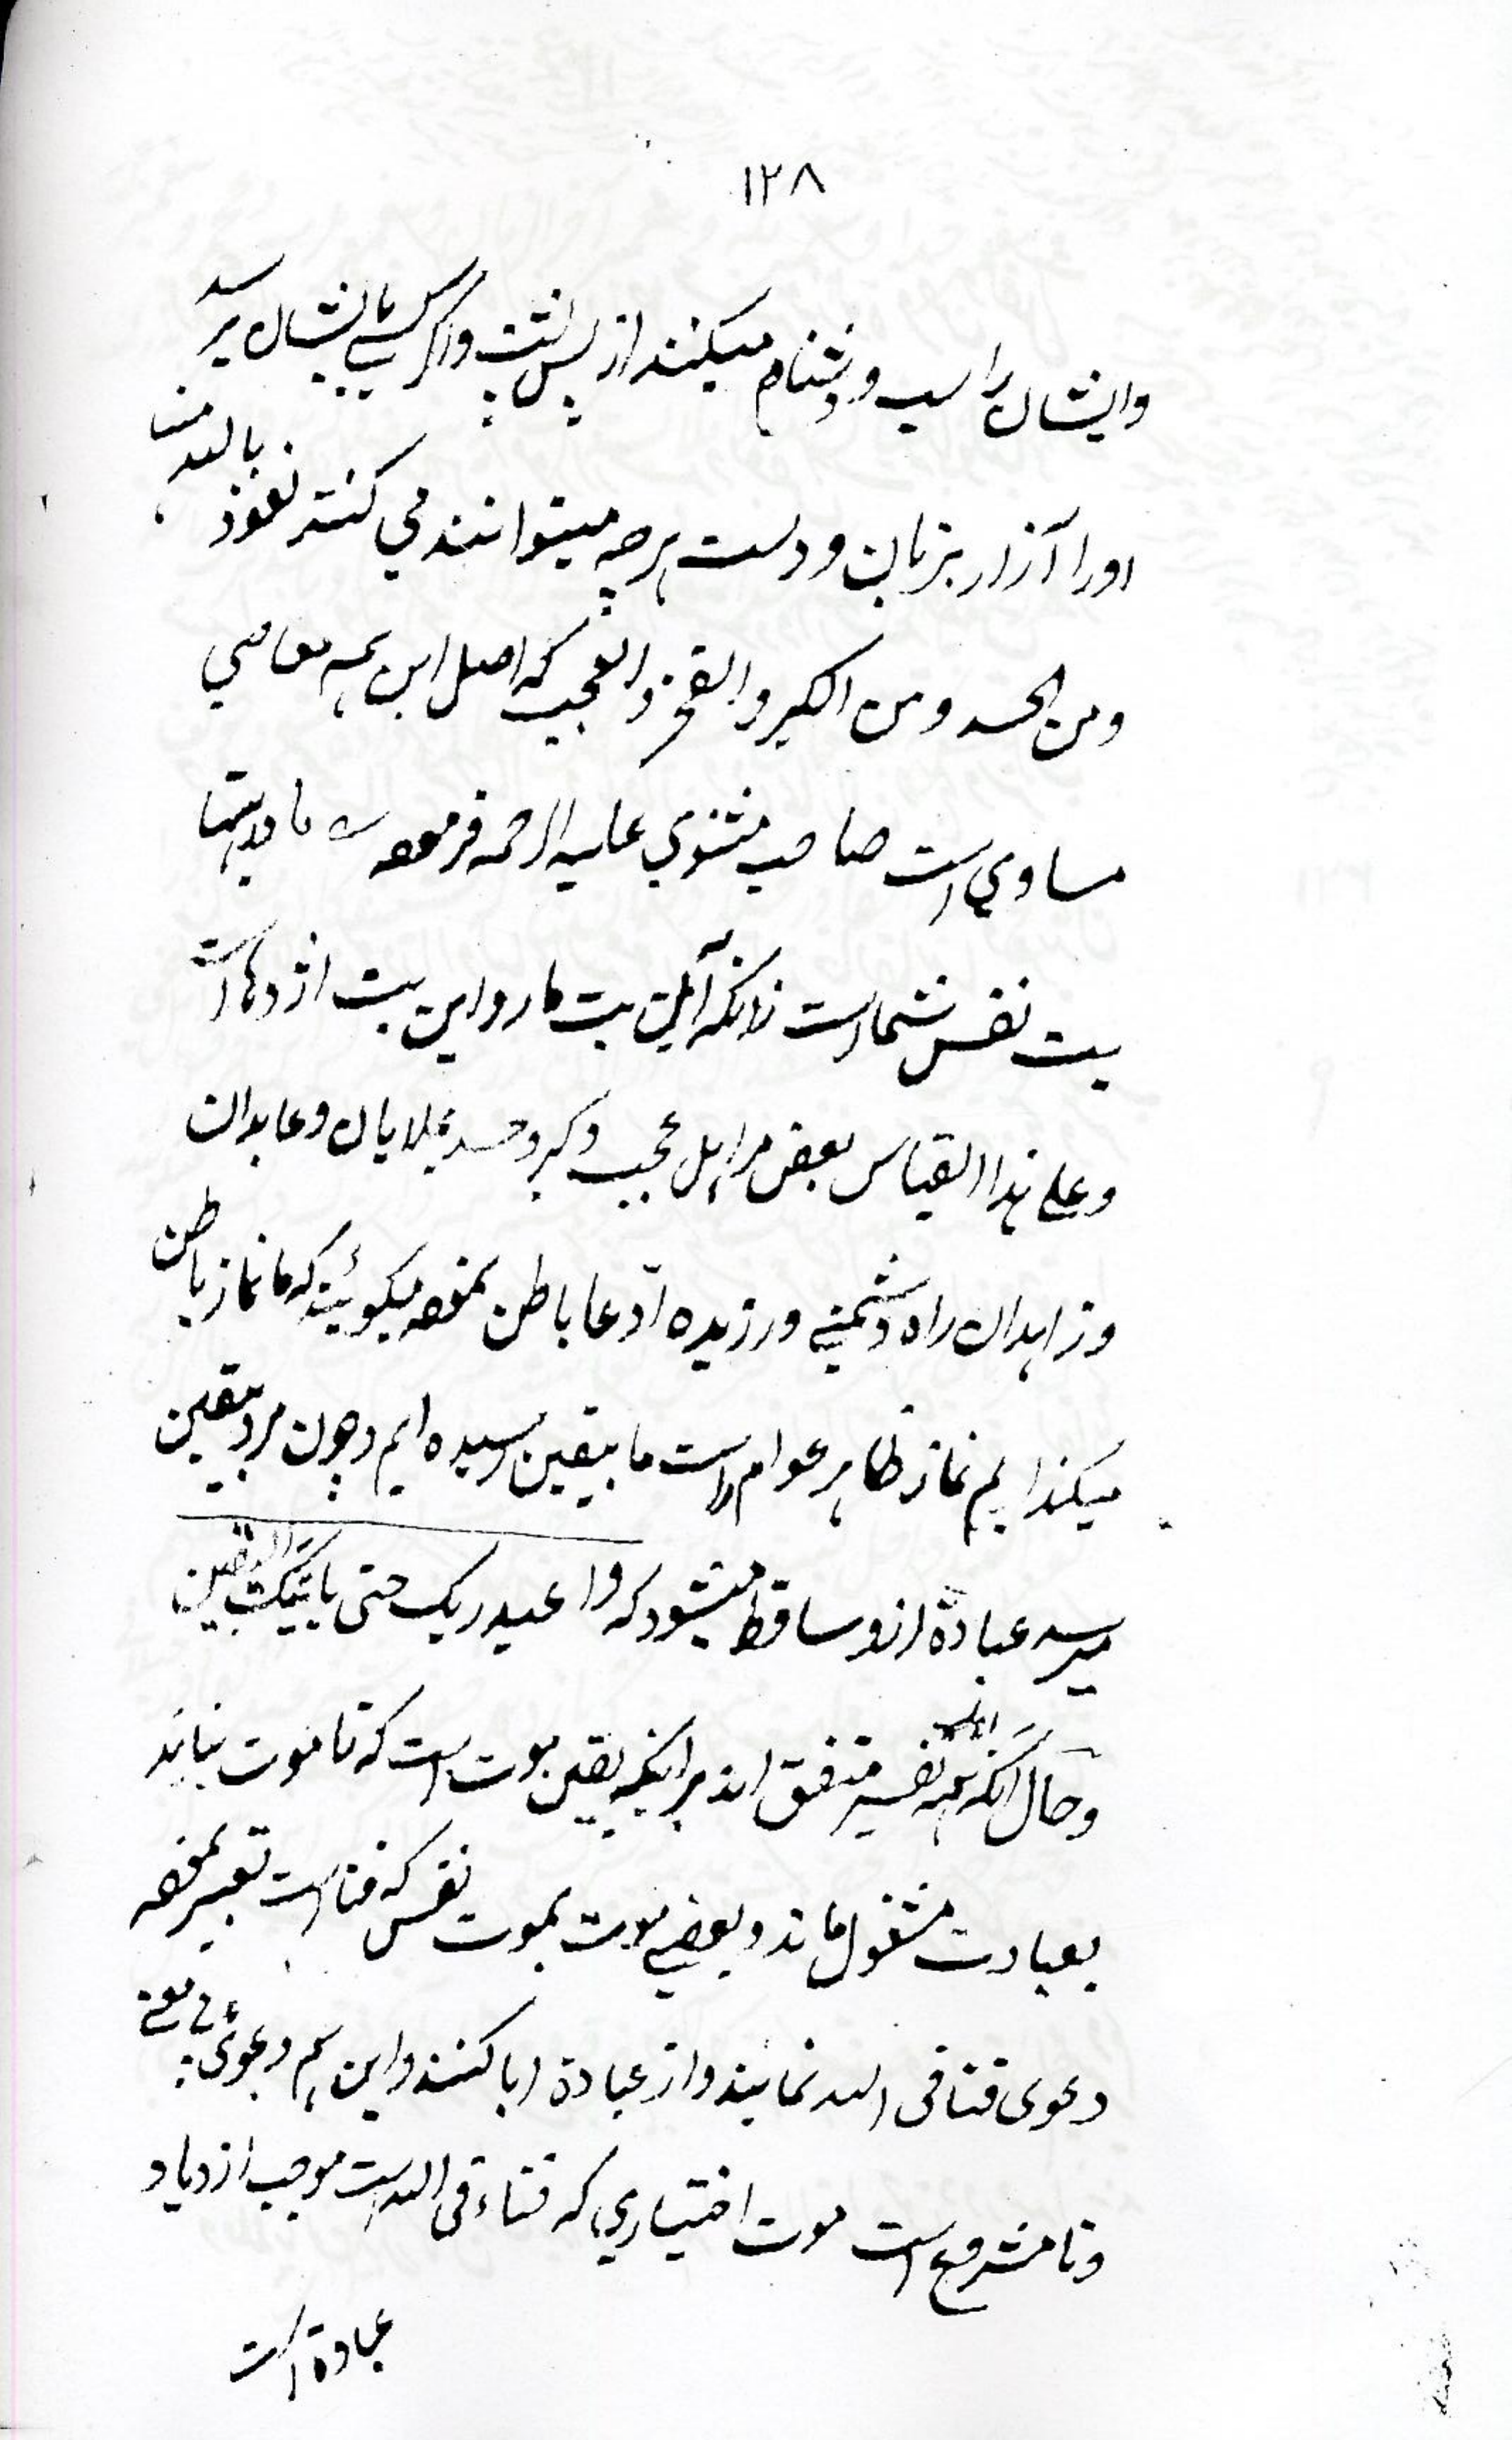 ۱۲۸
وایشان را سب و دشنام میکنند از پس پشت و اگر کسی بایشان برسد
اورا آزار بزبان و دست هرچه میتوانند می کنند نعوذ بالله منها
ومن الحسد ومن الکبر والفخر والعجب که اصل این همه معاصی
مساوی است صاحب مثنوی علیه الرحمه فرموده مادر بتها
بت نفس شماست زانکه آن بت مار و این بت اژدهاست
وعلی هذا القیاس بعض مراهل عجب و کبر و حسد بملایان و عابدان
وزاهدان راه دشمنی ورزیده ادعا باطن نموده میگویند که ما نماز باطن
میگذاریم نماز ظاهر عوام راست ما بیقین رسیده ایم وچون مرد بیقین
میرسد عبادة ازو ساقط میشود که واعبد ربک حتی یاتیک الیقین
وحال آنکه همه اهل تفسیر متفق اند بر اینکه یقین موت است که تا موت نیاید
بعبادت مشغول ماند و بعضی موت بموت نفس که فنا است تعبیر نموده
دعوی فنا فی الله نمایند و از عبادة ابا کنند و این هم دعوئ بی معنی
ونامشروع است موت اختیاری که فناء فی الله است موجب ازدیاد
عبادة است